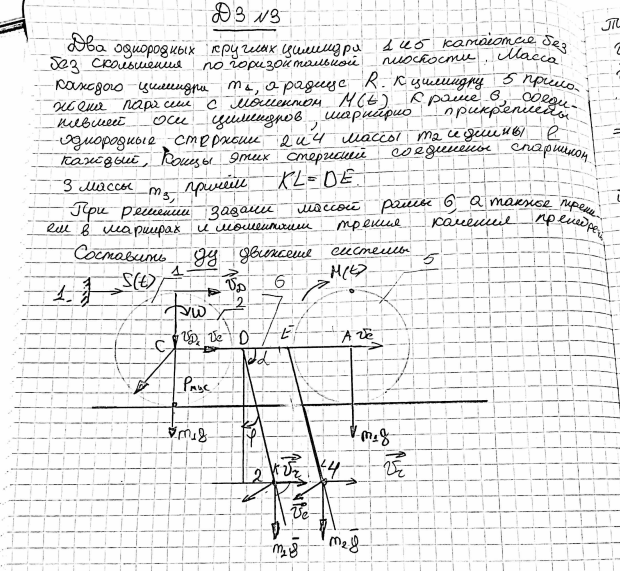 ДЗ №3
Два однородных круглых цилиндра 1 и 5 катаются без
без скольжения по горизонтальной плоскости. Масса
каждого цилиндра m₁, а радиус R. К цилиндру 5 прило-
жена пара сил с моментом M(t) К раме 6, соеди-
нившей оси цилиндров, шарнирно прикреплены
однородные стержни 2 и 4 массы m₂ и длины l
каждый, Концы этих стержней соединены спарником
3 массы m₃, причём KL = DE.
При решении задачи массой рамы 6, а также трени-
ем в шарнирах и моментами трения качения пренебречь
Составить ДУ движения системы
1. S(t) 1 V_D 6 M(t) 5
ω 2
C V_D V_e D E A V_e
α
P_мус
m₁g φ m₁g
2 K V_r L 4 V_r
V_e
m₂g m₂g